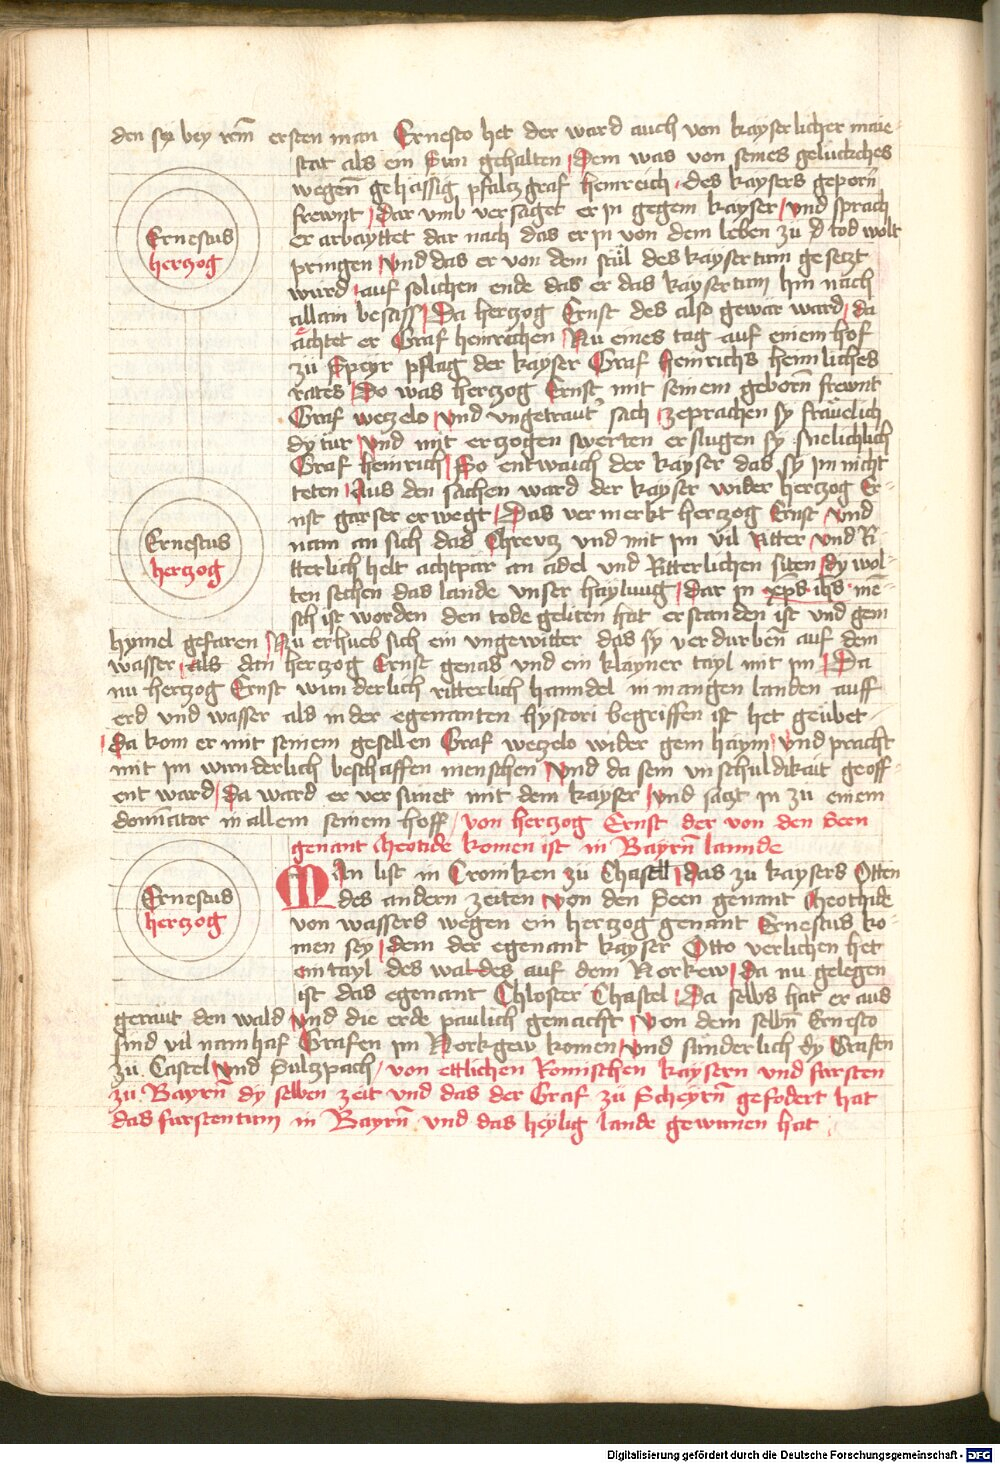 den sy bey irm ersten man Ernesto het der ward auch von kayserlicher maie
stat als ein Sun gehalten Dem was von seines gelückches
wegen gehässig pfaltzgraf heinreich des kaysers geporn
frewnt Dar vmb versaget er in gegem kayser vnd sprach
er arbayttet dar nach das er in von dem leben zu d tod wolt
pringen vnd das er von dem stůl des kaysertum gesetzt
wurd auf solichen ende das er das kaysertum hin nach
allain besass Da hertzog Ernst des also gewar ward da
ächtet er Graf heinreichen Nu eines tag auf einem hof
zů Speyr pflag der kayser Graf heinrichs heimliches
rates Do was hertzog Ernst mit seinem geborn frewnt
Graf wetzelo vnd vngetraut sach zeprachen sy frauelich
dy tür vnd mit ertzogen swerten erslugen sy snelichlich
Graf heinrich So entwaich der kayser das sy im nicht
teten Aus den sachen ward der kayser wider hertzog Er-
nst gar ser erwegt Das vermerkt hertzog Ernst vnd
nam an sich das Chrewtz vnd mit im vil Ritter vnd Ri
tterlich helt achtpar an adel vnd Ritterlichen siten dy wol-
ten sechen das lande vnser hayluug dar in xps ihs me-
sch ist worden den tode geliten hat erstanden ist vnd gem
hymel gefaren Nu erhueb sich ein vngewitter das sy verdurben auf dem
wasser als dan hertzog Ernst genas vnd ein klayner tayl mit im Da
nu hertzog Ernst wunderlich ritterlich hanndel in mangen landen auff
erd vnd wasser als in der egenanten hystori begriffen ist het geübet
Da kom er mit seinem gesellen Graf wetzelo wider gem haym vnd pracht
mit im wunderlich beschaffen menschen vnd da sein vnschuldikait geoff-
ent ward Da ward er versünet mit dem kayser vnd satzt in zů einem
dominator in allem seinem hoff von hertzog Ernst der von den Seen
genant cheotide komen ist in Bayrn lannde
MAn list in Croniken zů Chastell Das zu kaysers Otten
des andern zeiten von den Seen genant cheothide
von wassers wegen ein hertzog genant Ernestus ko-
men sey dem der egenant kayser Otto verlichen het
ein tayl des waldes auf dem Norkew Da nu gelegen
ist das egenant Chloster Chastel Da selbs hat er aus
geraut den wald vnd die erde paulich gemacht von dem selbn Ernesto
sind vil namhaf Grafen im Norkgew komen vnd sünderlich dy Grafen
zů Castel vnd Sultzpach von ettlichen Romischen kaysern vnd fürsten
zů Bayrn dy selben zeit vnd das der Graf zů Scheyrn gefodert hat
das fürstentum in Bayrn vnd das heylig lande gewunen hat
Ernestus
hertzog
Ernestus
hertzog
Ernestus
hertzog
Digitalisierung gefördert durch die Deutsche Forschungsgemeinschaft - DFG